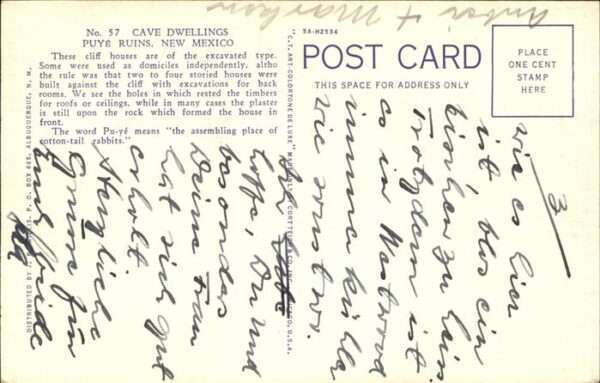 No. 57 CAVE DWELLINGS
PUYÉ RUINS, NEW MEXICO
These cliff houses are of the excavated type.
Some were used as domiciles independently, altho
the rule was that two to four storied houses were
built against the cliff with excavations for back
rooms. We see the holes in which rested the timbers
for roofs or ceilings, while in many cases the plaster
is still upon the rock which formed the house in
front.
The word Pu-yé means "the assembling place of
cotton-tail rabbits."
5A-H2534
POST CARD
THIS SPACE FOR ADDRESS ONLY
PLACE
ONE CENT
STAMP
HERE
"C.T. ART-COLORTONE DE LUXE"
3
wie es hier
ist blos ein
bisschen zu
Trotzdem ist
es in Westwood
immer kühler
wie sonst wo.
Ich
hoffe, Du und
besonders
Deine Frau
hat sich gut
erholt
Herzliche
Grüsse für
Euch beide